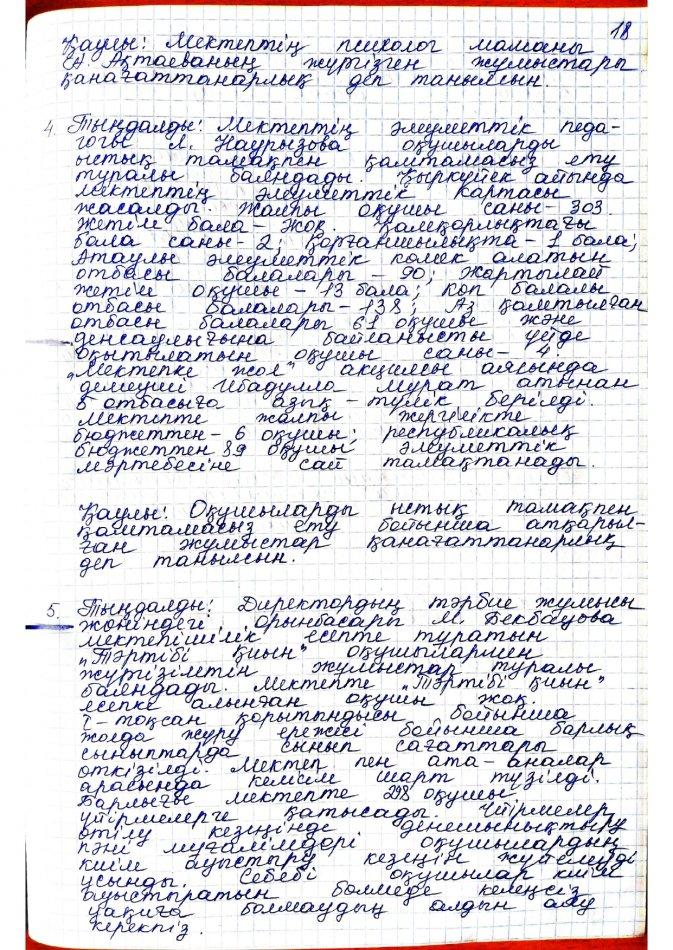 18
Қаулы: Мектептің психолог маманы
А. Ақтаеваның жүргізген жұмыстары
қанағаттанарлық деп танылсын.
4. Тыңдалды: Мектептің әлеуметтік педа-
гогы Л. Наурызова оқушыларды
ыстық тамақпен қамтамасыз ету
туралы баяндады. Қыркүйек айында
мектептің әлеуметтік картасы
жасалды. Жалпы оқушы саны- 303.
Жетім бала- жоқ. Қамқорлықтағы
бала саны- 2; Қорғаншылықта- 1 бала;
Атаулы әлеуметтік көмек алатын
отбасы балалары - 90; жартылай
жетім оқушы - 13 бала; көп балалы
отбасы балалары- 138; Аз қамтылған
отбасы балалары 61 оқушы және
денсаулығына байланысты үйде
оқытылатын оқушы саны- 4.
"Мектепке жол" акциясы аясында
демеуші Ибадулла Мурат атынан
5 отбасыға азық - түлік берілді.
Мектепте жалпы жергілікте
бюджеттен- 6 оқушы; республикалық
бюджеттен 89 оқушы әлеуметтік
мәртебесіне сай тамақтанады.
Қаулы: Оқушыларды ыстық тамақпен
қамтамасыз ету бойынша атқарыл-
ған жұмыстар қанағаттанарлық
деп танылсын.
5. Тыңдалды: Директордың тәрбие жұмысы
жөніндегі орынбасары М. Бекбауова
мектепішілік есепте тұратын
"Тәртібі қиын" оқушылармен
жүргізілетін жұмыстар туралы
баяндады. Мектепте "Тәртібі қиын"
есепке алынған оқушы жоқ.
І- тоқсан қорытындысы бойынша
жолда жүру ережесі бойынша барлық
сыныптарда сынып сағаттары
өткізілді. Мектеп пен ата- аналар
арасында келісім шарт түзілді.
Барлығы мектепте 298 оқушы
үйірмелерге қатысады. Үйірмелер
өтілу кезеңінде денешынықтыру
пәні мұғалімдері оқушылардың
киім ауыстыру кезеңін жүйелеуді
ұсынды. Себебі оқушылар киім
ауыстыратын бөлмеде келеңсіз
уақиға болмаудың алдын алу
керекпіз.